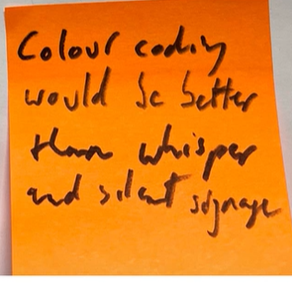 Colour coding
would be better
than whisper
and silent signage